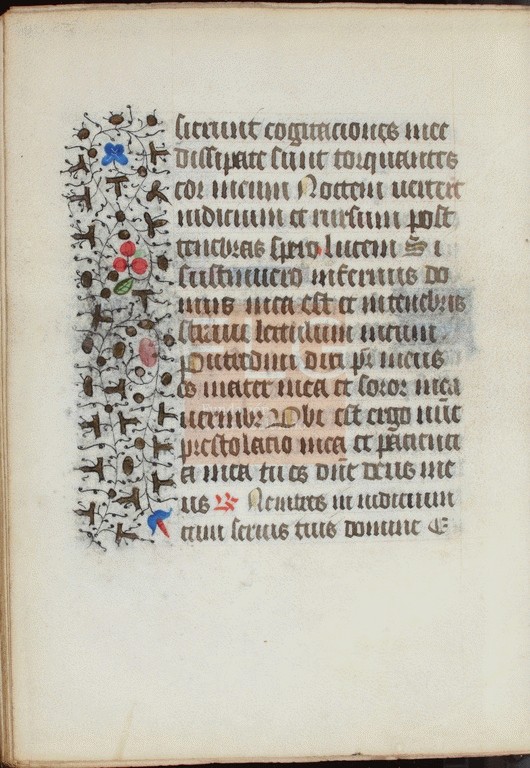 sierunt cogitaciones mee
dissipate sunt torquentes
cor meum Noctem uerterūt
in diem et rursum post
tenebras spero lucem Si
sustinuero infernus do
mus mea est et in tenebris
straui lectulum meum
putredini dixi pr meus
es mater mea et soror mea
uermibꝫ Vbi est ergo nūc
prestolacio mea et pacienci
a mea tu es dn̄e deus me
us ℟ Ne intres in iudicium
cum seruis tuis domine